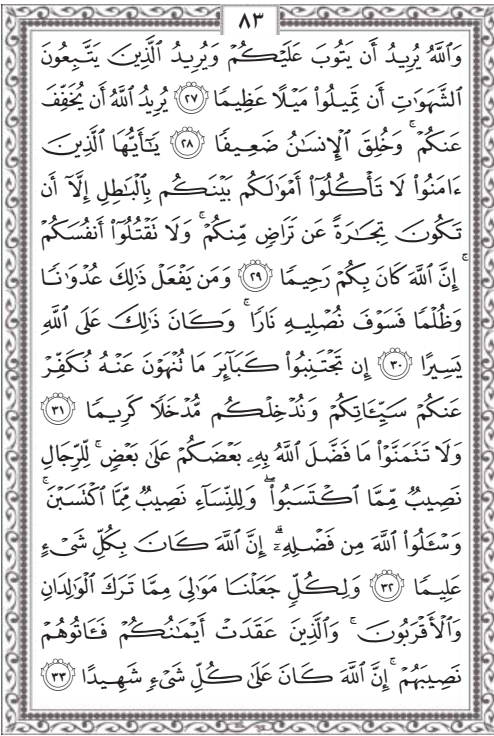 ٨٣
وَٱللَّهُ يُرِيدُ أَن يَتُوبَ عَلَيْكُمْ وَيُرِيدُ ٱلَّذِينَ يَتَّبِعُونَ
ٱلشَّهَوَٰتِ أَن تَمِيلُوا۟ مَيْلًا عَظِيمًا ٢٧ يُرِيدُ ٱللَّهُ أَن يُخَفِّفَ
عَنكُمْ ۚ وَخُلِقَ ٱلْإِنسَٰنُ ضَعِيفًا ٢٨ يَٰٓأَيُّهَا ٱلَّذِينَ
ءَامَنُوا۟ لَا تَأْكُلُوٓا۟ أَمْوَٰلَكُم بَيْنَكُم بِٱلْبَٰطِلِ إِلَّآ أَن
تَكُونَ تِجَٰرَةً عَن تَرَاضٍ مِّنكُمْ ۚ وَلَا نَقْتُلُوٓا۟ أَنفُسَكُمْ
ۚ إِنَّ ٱللَّهَ كَانَ بِكُمْ رَحِيمًا ٢٩ وَمَن يَفْعَلْ ذَٰلِكَ عُدْوَٰنًا
وَظُلْمًا فَسَوْفَ نُصْلِيهِ نَارًا ۚ وَكَانَ ذَٰلِكَ عَلَى ٱللَّهِ
يَسِيرًا ٣٠ إِن تَجْتَنِبُوا۟ كَبَآئِرَ مَا نُنْهَوْنَ عَنْهُ نُكَفِّرْ
عَنكُمْ سَيِّـَٔاتِكُمْ وَنُدْخِلْكُم مُّدْخَلًا كَرِيمًا ٣١
وَلَا تَتَمَنَّوْا۟ مَا فَضَّلَ ٱللَّهُ بِهِۦ بَعْضَكُمْ عَلَىٰ بَعْضٍ ۚ لِّلرِّجَالِ
نَصِيبٌ مِّمَّا ٱكْتَسَبُوا۟ ۖ وَلِلنِّسَآءِ نَصِيبٌ مِّمَّا ٱكْتَسَبْنَ ۚ
وَسْـَٔلُوا۟ ٱللَّهَ مِن فَضْلِهِۦٓ ۗ إِنَّ ٱللَّهَ كَانَ بِكُلِّ شَىْءٍ
عَلِيمًا ٣٢ وَلِكُلٍّ جَعَلْنَا مَوَٰلِىَ مِمَّا تَرَكَ ٱلْوَٰلِدَانِ
وَٱلْأَقْرَبُونَ ۚ وَٱلَّذِينَ عَقَدَتْ أَيْمَٰنُكُمْ فَـَٔاتُوهُمْ
نَصِيبَهُمْ ۚ إِنَّ ٱللَّهَ كَانَ عَلَىٰ كُلِّ شَىْءٍ شَهِيدًا ٣٣